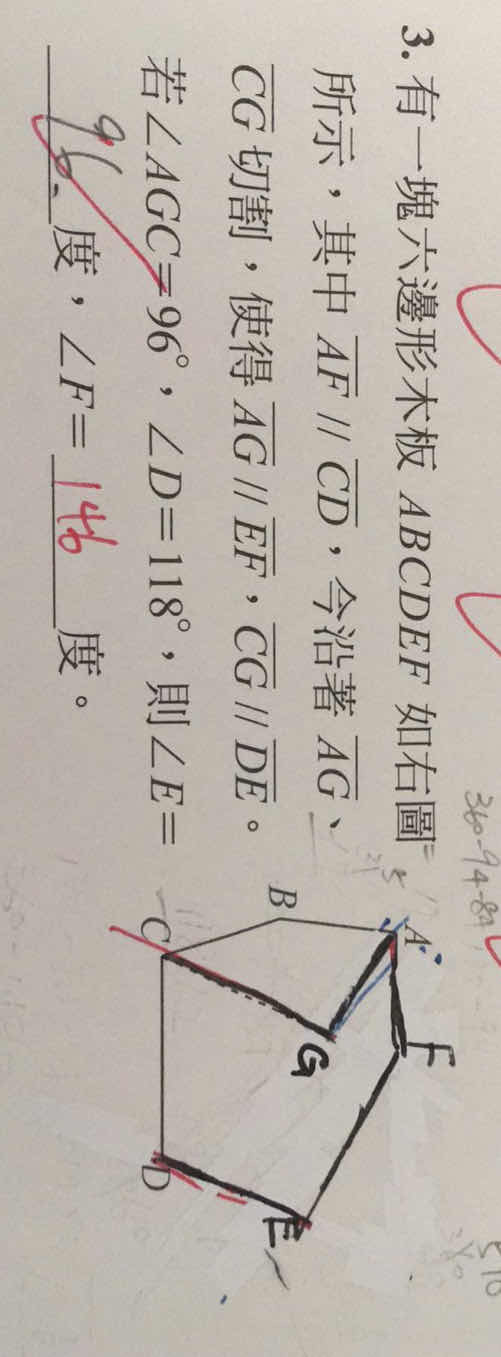 3. 有一塊六邊形木板 ABCDEF 如右圖
所示，其中 AF // CD，今沿著 AG、
CG 切割，使得 AG // EF，CG // DE。
若∠AGC=96°，∠D=118°，則∠E=
96 度，∠F= 146 度。
A
B
C
D
E
F
G